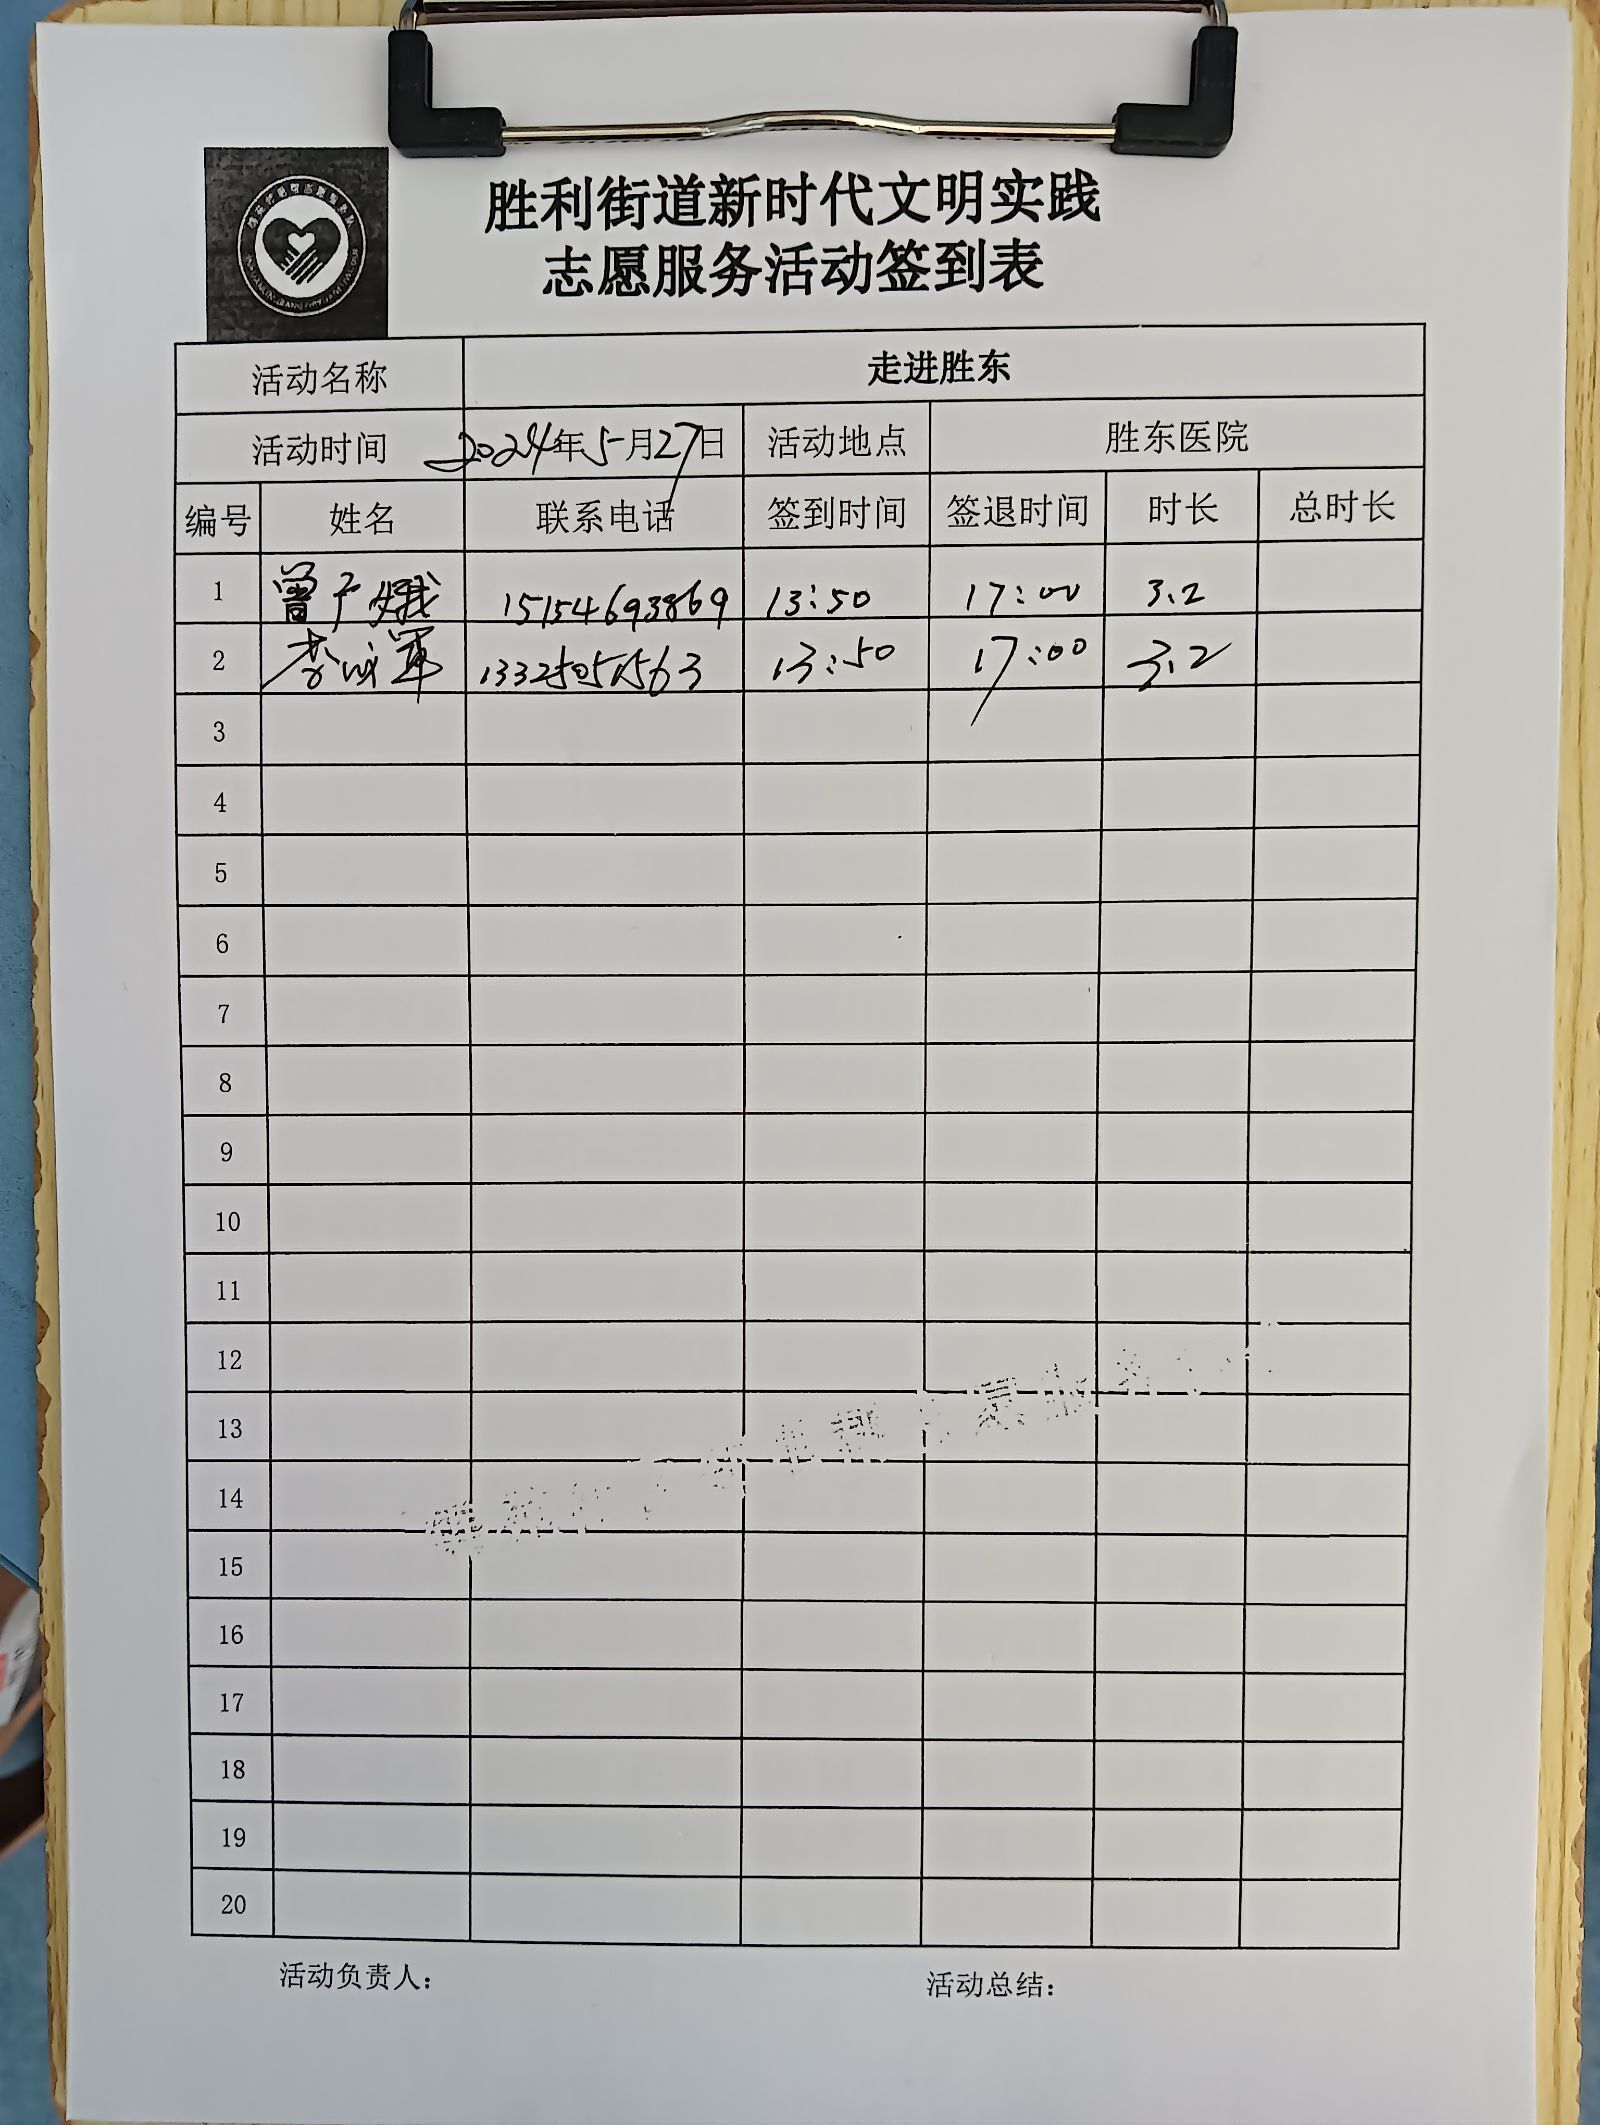 胜利街道新时代文明实践
志愿服务活动签到表
活动名称 走进胜东
活动时间 2024年5月27日 活动地点 胜东医院
编号 姓名 联系电话 签到时间 签退时间 时长 总时长
1 曾广娥 15154693869 13:50 17:00 3.2
2 李成军 13325051563 13:50 17:00 3.2
3
4
5
6
7
8
9
10
11
12
13
14
15
16
17
18
19
20
活动负责人: 活动总结: